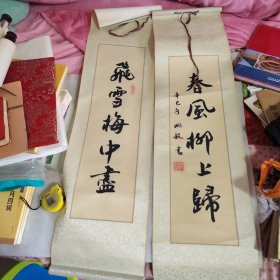 飛雪梅中盡
春風柳上歸
辛巳年
書